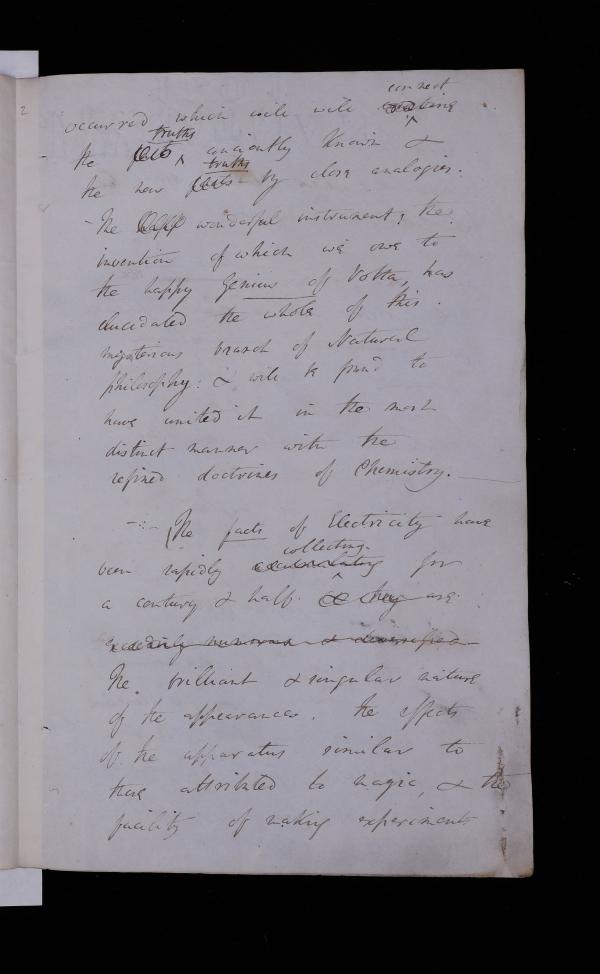 2
connect
occurred which will will
truths
the facts ^ anciently known &
truths
the new facts by close analogies.
- The wonderful instrument, the
invention of which we owe to
the happy Genius of Volta, has
elucidated the whole of this
mysterious branch of Natural
philosophy: & will be found to
have united it in the most
distinct manner with the
refined doctrines of Chemistry.
-:- The facts of Electricity have
collecting
been rapidly accumulating for
a century & half. & they are
exceedingly numerous & diversified
The brilliant & singular nature
of the appearances. the effects
of the apparatus similar to
those attributed to magic, & the
facility of making experiments